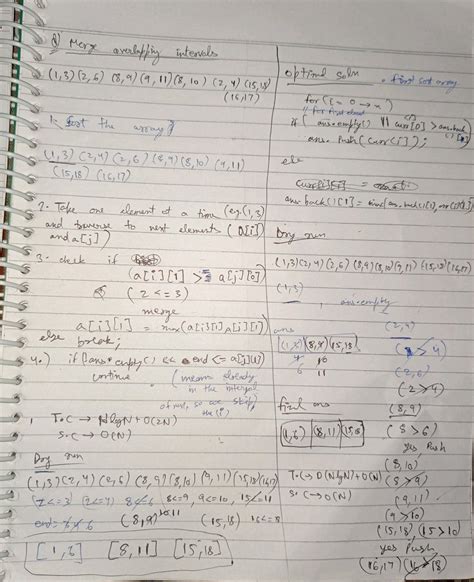 d) Merge overlapping intervals
(1,3) (2,6) (8,9) (9,11) (8,10) (2,4) (15,18)
(16,17)
1. Sort the array
(1,3) (2,4) (2,6) (8,9) (8,10) (9,11)
(15,18) (16,17)
2. Take one element at a time (eg (1,3)
and traverse to next elements (a[i]
and a[j])
3. check if
(a[i][1] >= a[j][0])
(2 <= 3)
merge
a[i][1] = max(a[i][1] a[j][1])
else break;
4.) if (!ans.empty() && end <= a[i][1])
continue (means already
in the interval
of ans, so we skip
T.C → NlogN + O(2N)
S.C → O(N)
Dry run
(1,3) (2,4) (2,6) (8,9) (8,10) (9,11) (15,18) (16,17)
2<=3 2<=4 8<=6 8<=9, 9<=10, 15<=11
(8,9) (15,18) 16<=18
[1,6] [8,11] [15,18]
optimal soln • first sort array
for (i = 0 → n)
// for first element
if (ans.empty() || curr[0] > ans.back()[1])
ans.push(curr(i));
else
ans.back()[1] = max(ans.back()[1], curr[1])
Dry run
(1,3) (2,4) (2,6) (8,9) (8,10) (9,11) (15,18) (16,17)
(1,3), ans.empty
ans (2,4)
(1,3) (8,9) (15,18)
4 10
6 11
(2,6)
(2 > 4)
final ans (8,9)
(1,6) (8,11) (15,18) (8 > 6)
yes Push
(8,10)
T.C → O(NlogN) + O(N) (8 > 9)
S.C → O(N) (9,11)
(9 > 10)
(15,18) (15 > 10)
yes Push
(16,17) (16 > 18)